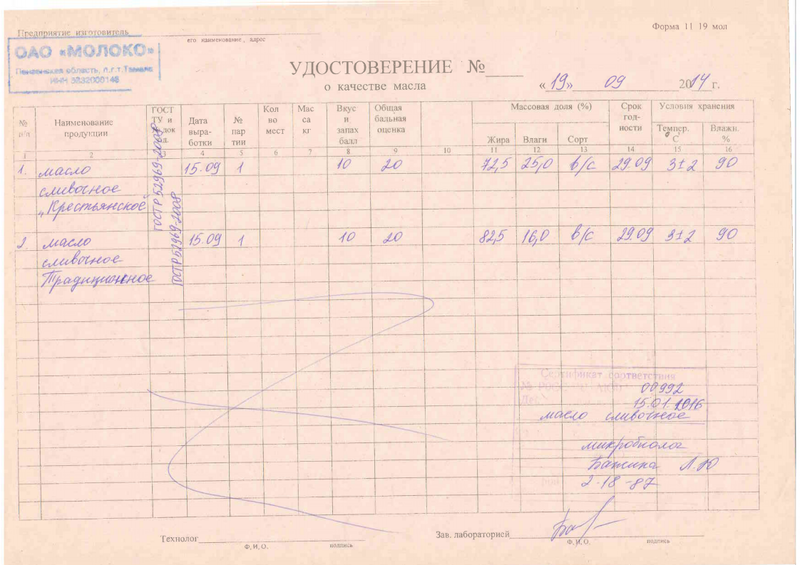 Предприятие изготовитель
его наименование, адрес
Форма 11 19 мол
ОАО «МОЛОКО»
Пензенская область, п.г.т.
ИНН
УДОСТОВЕРЕНИЕ №
о качестве масла
«19» 09 2014 г.
№ п/п Наименование продукции ГОСТ ТУ и док Дата выработки № партии Кол во мест Масса кг Вкус и запах балл Общая бальная оценка Массовая доля (%) Срок годности Условия хранения
Жира Влаги Сорт Темпер. °С Влажн. %
1 2 4 5 6 7 8 9 10 11 12 13 14 15 16
1. масло сливочное „Крестьянское" ГОСТ Р 52969-2008 15.09 1 10 20 72,5 25,0 в/с 29.09 3±2 90
2 масло сливочное Традиционное ГОСТ Р 52969-2008 15.09 1 10 20 82,5 16,0 в/с 29.09 3±2 90
Сертификат соответствия
00992
15.01.1016
масло сливочное
микробиолог
Бажина Л.Ю
2-18-87
Технолог
Ф.И.О. подпись
Зав. лабораторией
Ф.И.О. подпись